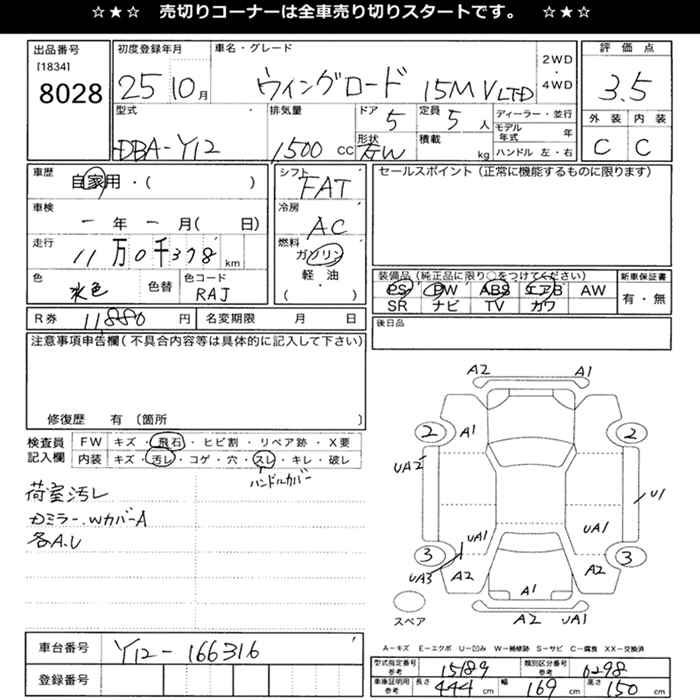 ☆★☆ 売切りコーナーは全車売り切りスタートです。 ☆★☆
出品番号
[1834]
8028
初度登録年月
25 10月
車名・グレード
ウイングロード 15M V LTD
2WD
・
4WD
評価点
3.5
外装 内装
C C
型式
DBA-Y12
排気量
1500 cc
ドア 5
形状
定員 5 人
積載 kg
ディーラー・並行
モデル年式 年
ハンドル 左・右
車歴
自家用・( )
車検
ー年ー月( 日)
走行
11万0千378 km
色
水色
色替
色コード
RAJ
シフト
FAT
冷房
AC
燃料
ガソリン
軽・油
( )
セールスポイント(正常に機能するものに限ります)
装備品(純正品に限り○をつけてください)
PS PW ABS エアB AW
SR ナビ TV カワ
新車保証書
有・無
R券 11880 円
名変期限 月 日
後日品
注意事項申告欄(不具合内容等は具体的に記入して下さい)
修復歴 有〔箇所
検査員記入欄
FW キズ・飛石・ヒビ割・リペア跡・X要
内装 キズ・汚レ・コゲ・穴・スレ・キレ・破レ
ハンドルカバー
荷室汚レ
Dミラー.WカバーA
各A.U
A2 A1
2 A1 2
UA2 U1
UA1 UA1
3 3
UA3 A2 A1 A2
A2 UA1
スペア
A−キズ E−エクボ U−凹み W−補修跡 S−サビ C−腐食 XX−交換済
車台番号 Y12-166316
登録番号
型式指定番号 参考 15189
類別区分番号 参考 0298
車庫証明用 参考 長さ 444 cm 幅 169 cm 高さ 150 cm